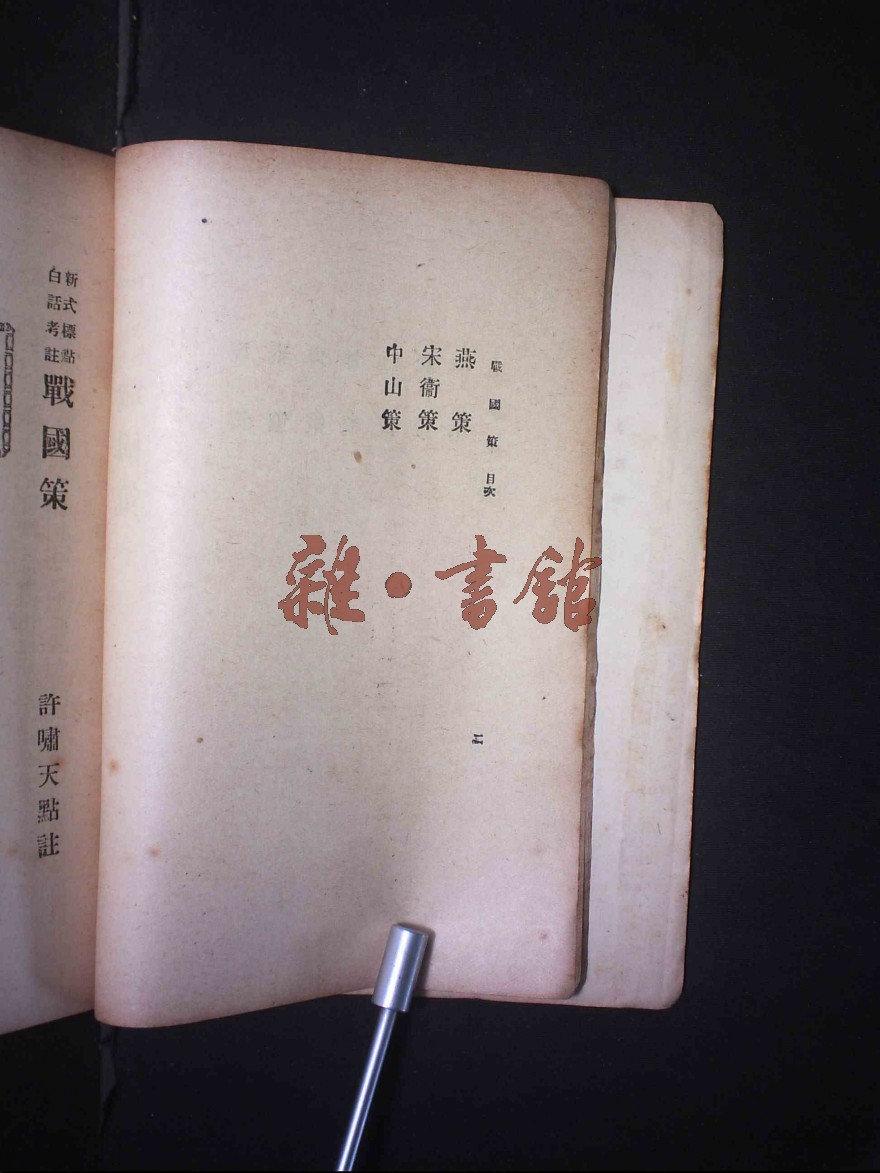 戰國策 目次
燕策
宋衞策
中山策
二
新式標點
白話考註
戰國策
許嘯天點註
雜•書館